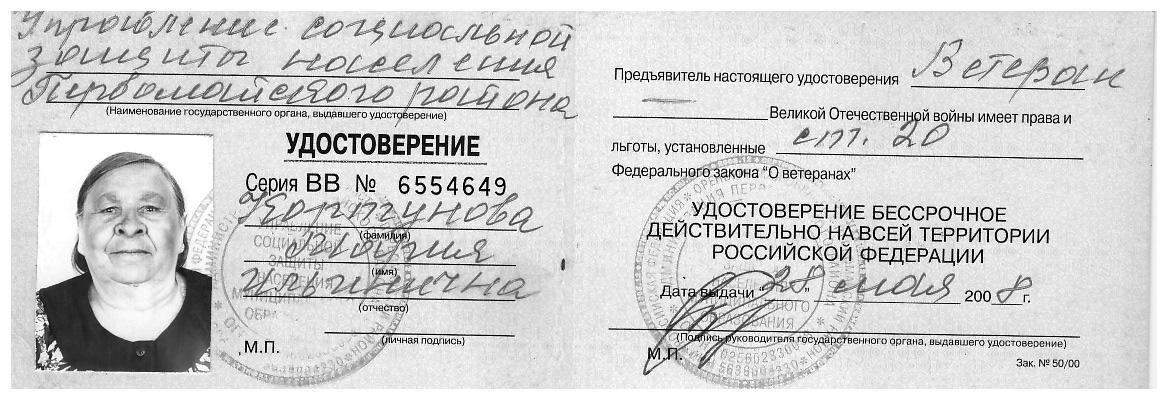 Управление социальной
защиты населения
Первомайского района
(Наименование государственного органа, выдавшего удостоверение)
УДОСТОВЕРЕНИЕ
Серия ВВ № 6554649
Коршунова
(фамилия)
София
(имя)
Ильинична
(отчество)
(личная подпись)
М.П.
УПРАВЛЕНИЕ
СОЦИАЛЬНОЙ
ЗАЩИТЫ
НАСЕЛЕНИЯ
Предъявитель настоящего удостоверения Ветеран
— Великой Отечественной войны имеет права и
льготы, установленные ст. 20
Федерального закона "О ветеранах"
УДОСТОВЕРЕНИЕ БЕССРОЧНОЕ
ДЕЙСТВИТЕЛЬНО НА ВСЕЙ ТЕРРИТОРИИ
РОССИЙСКОЙ ФЕДЕРАЦИИ
Дата выдачи "28" мая 2008 г.
(Подпись руководителя государственного органа, выдавшего удостоверение)
М.П.
Зак. № 50/00